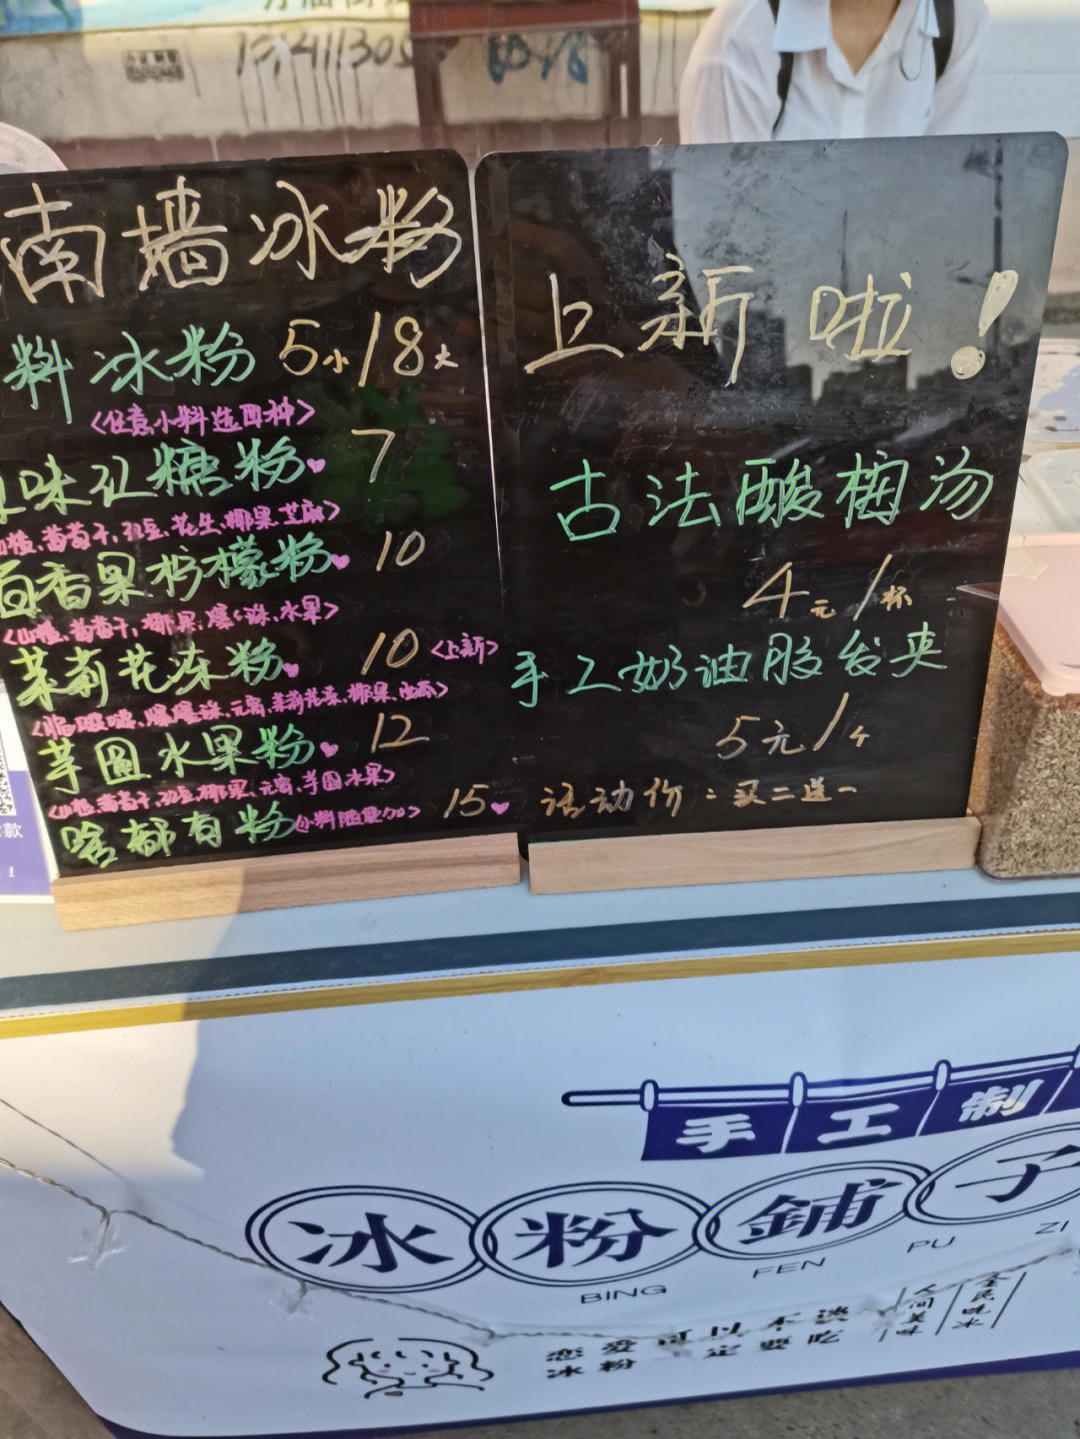 南墙冰粉
料冰粉 5小/8大
<任意小料选四种>
味红糖粉 7
葡萄干,红豆,花生,椰果,芝麻>
百香果柠檬粉 10
<山楂,葡萄干,椰果,爆爆珠,水果>
茉莉花冻粉 10 <上新>
芋圆水果粉 12
葡萄干,红豆,椰果,芋圆水果>
啥都有粉 15
上新啦!
古法酸梅汤
4元/杯
手工奶油胶发夹
5元/个
活动价:买二送一
手工制
冰粉鋪子
BING FEN PU ZI
恋爱可以不谈
冰粉一定要吃
人间美味
全民吃冰
款